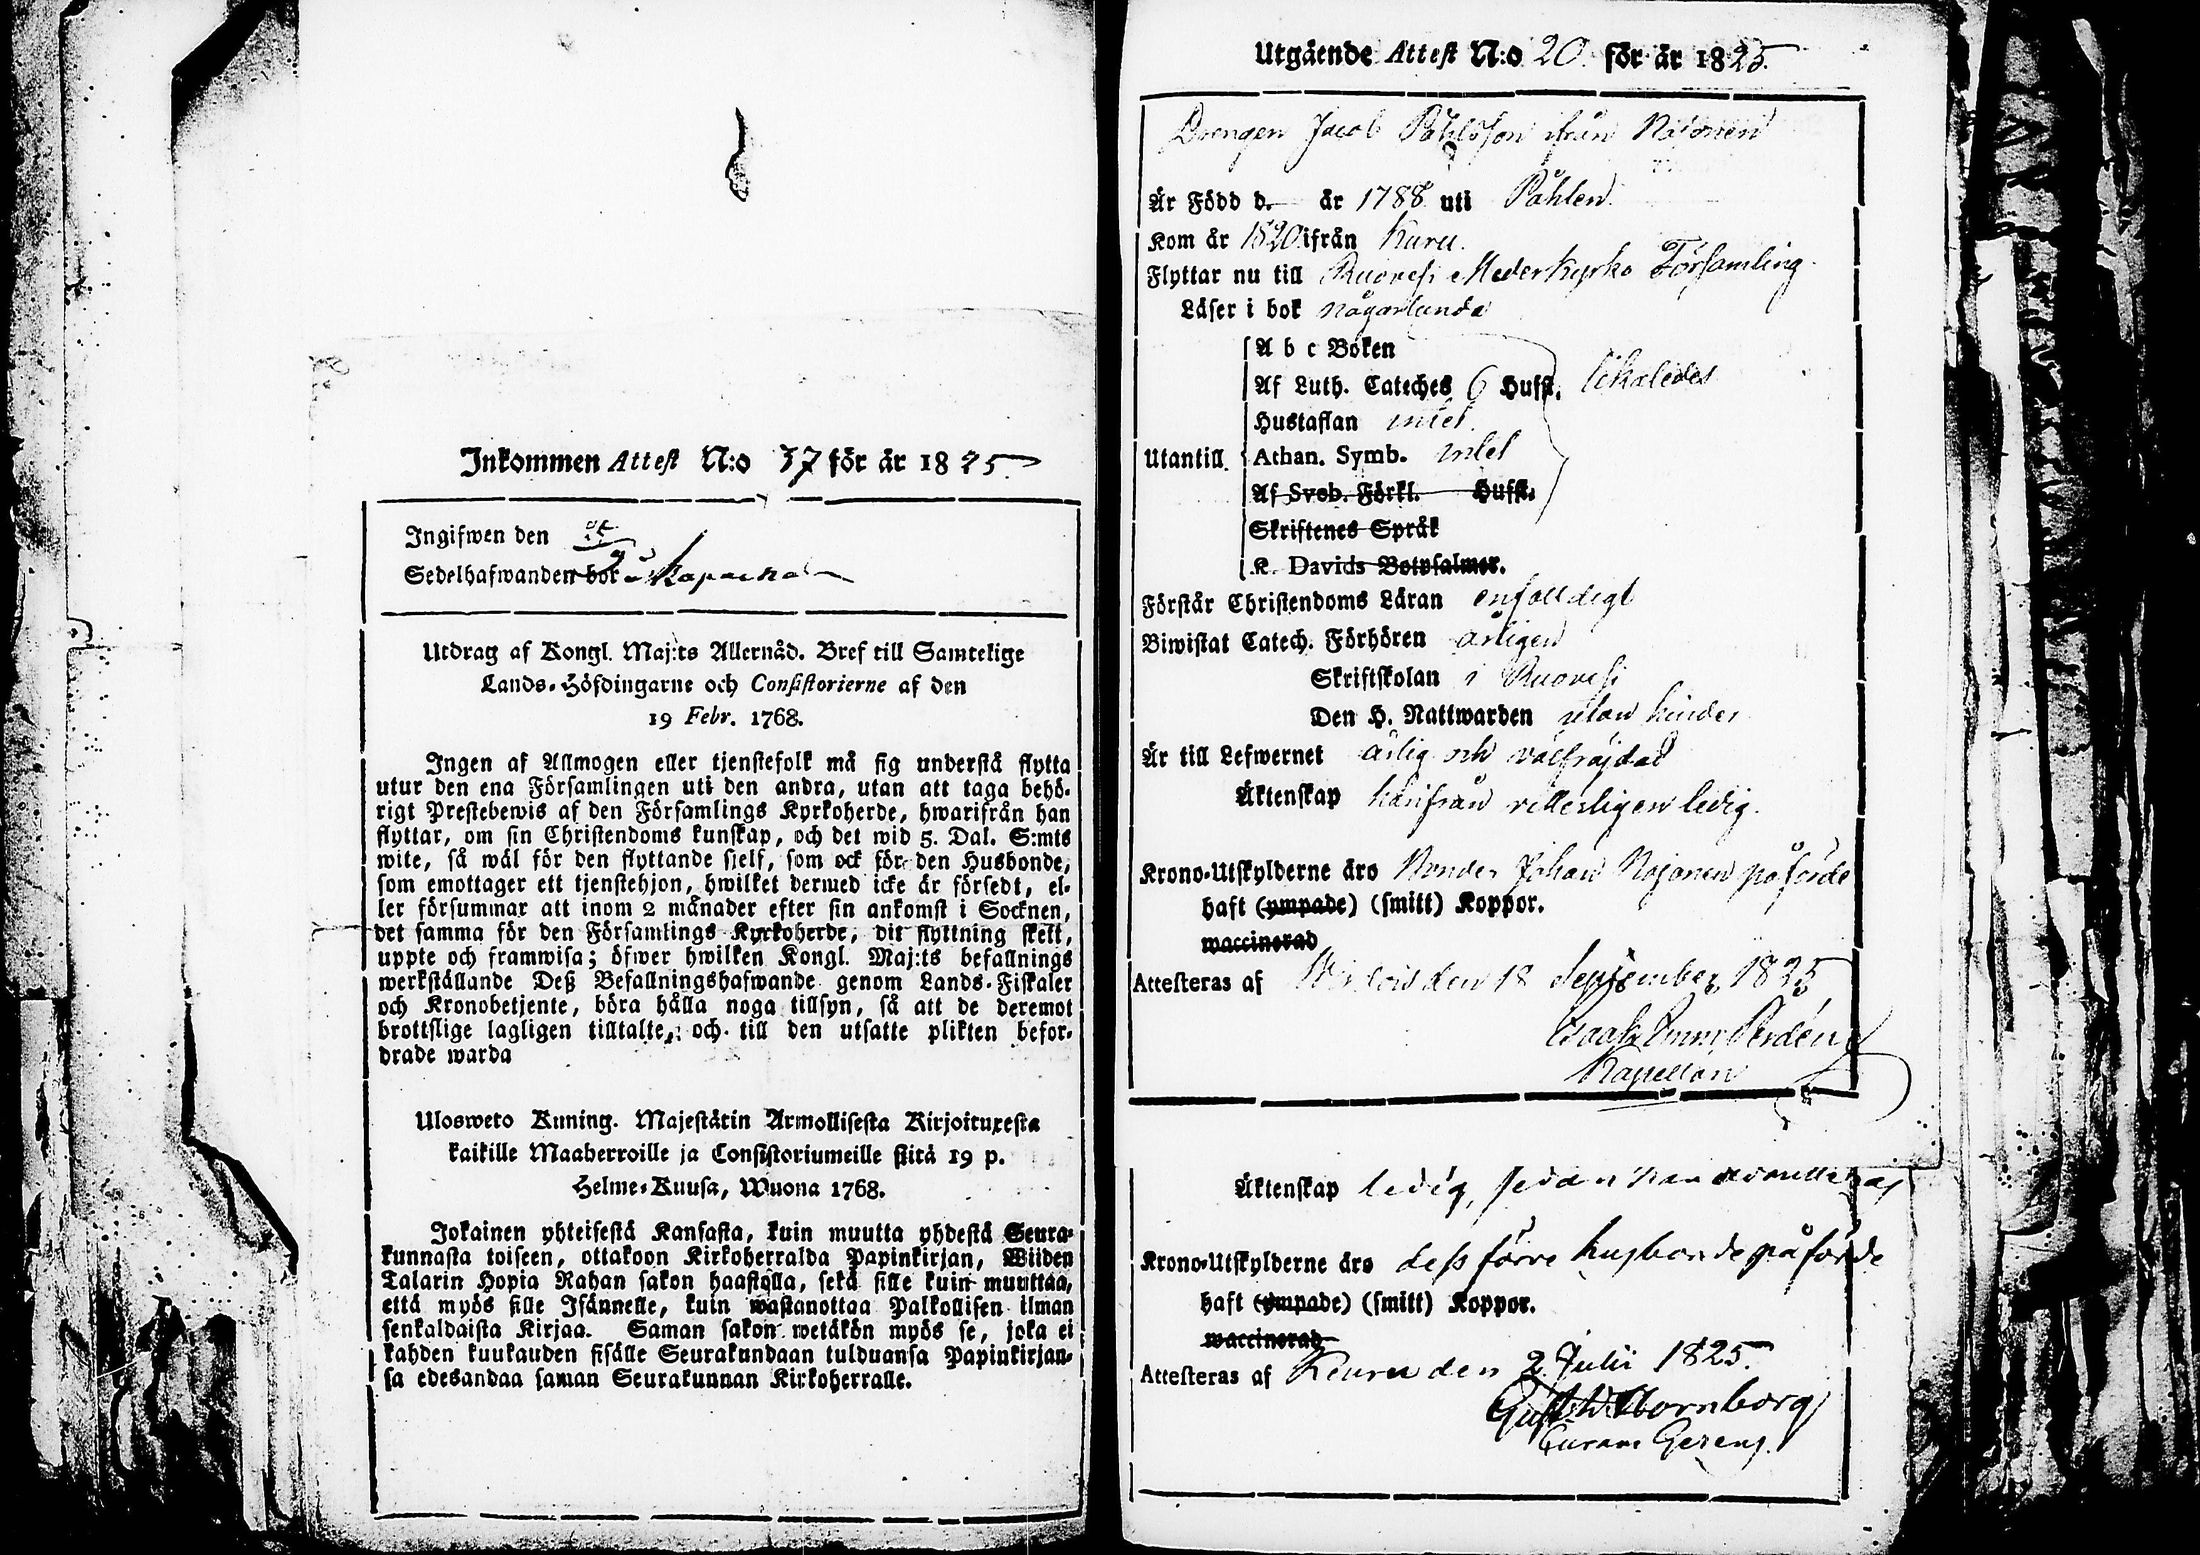 Inkommen Attest N:o 37 för år 1825
Ingifwen den
Sedelhafwanden bor
Utdrag af Kongl. Maj:ts Allernåd. Bref till Samtelige
Lands-Höfdingarne och Consistorierne af den
19 Febr. 1768.
Ingen af Allmogen eller tjenstefolk må sig understå flytta
utur den ena Församlingen uti den andra, utan att taga behö-
rigt Prestebewis af den Församlings Kyrkoherde, hwarifrån han
flyttar, om sin Christendoms kunskap, och det wid 5. Dal. S:mts
wite, så wäl för den flyttande sjelf, som ock för den Husbonde,
som emottager ett tjenstehjon, hwilket dermed icke är försedt, el-
ler försummar att inom 2 månader efter sin ankomst i Socknen,
det samma för den Församlings Kyrkoherde, dit flyttning skett,
uppte och framwisa; öfwer hwilken Kongl. Maj:ts befallnings
werkställande Deß Befallningshafwande genom Lands-Fiskaler
och Kronobetjente, böra hålla noga tillsyn, så att de deremot
brottslige lagligen tilltalte, och till den utsatte plikten befor-
drade warda
Ulosweto Kuning. Majestätin Armollisesta Kirjoituxesta
kaikille Maaherroille ja Consistoriumeille siitä 19 p.
Helme-Kuusa, Wuona 1768.
Jokainen yhteisestä Kansasta, kuin muutta yhdestä Seura-
kunnasta toiseen, ottakoon Kirkoherralda Papinkirjan, Wiiden
Talarin Hopia Rahan sakon haastolla, sekä sille kuin muuttaa,
että myös sille Isännelle, kuin wastanottaa Palkollisen ilman
senkaldaista Kirjaa. Saman sakon wetäkön myös se, joka ei
kahden kuukauden sisälle Seurakundaan tulduansa Papinkirjan-
sa edesandaa saman Seurakunnan Kirkoherralle.
Utgående Attest N:o 20 för år 1825.
Drengen Jacob Påhlsson ifrån Rajonen
Är Född d. — år 1788 uti Påhlen
Kom år 1820 ifrån Kuru.
Flyttar nu till Ruovesi Moderkyrko Församling
Läser i bok någorlunda
A b c Boken
Af Luth. Cateches 6 Hufst. likaledes
Hustaflan intet
Utantill. Athan. Symb. intet
Af Sveb. Förkl. Hufst.
Skriftenes Språk
K. Davids Botpsalmer.
Förstår Christendoms Läran enfalldigt
Biwistat Catech. Förhören årligen
Skriftskolan i Ruovesi
Den H. Nattwarden utan hinder
Är till Lefwernet ärlig och välfräjdad
Äktenskap härifrån vitterligen ledig.
Krono-Utskylderne äro Bonden Johan Rajanen påförde
haft (ympade) (smitt) Koppor.
waccinerad
Attesteras af Wirdois den 18 September 1825
Kapellan
Äktenskap ledig, sedan han
Krono-Utskylderne äro dess förre husbonde påförde
haft (ympade) (smitt) Koppor.
waccinerad
Attesteras af Kuru den 2 Julii 1825.
Gust. W. Thornborg